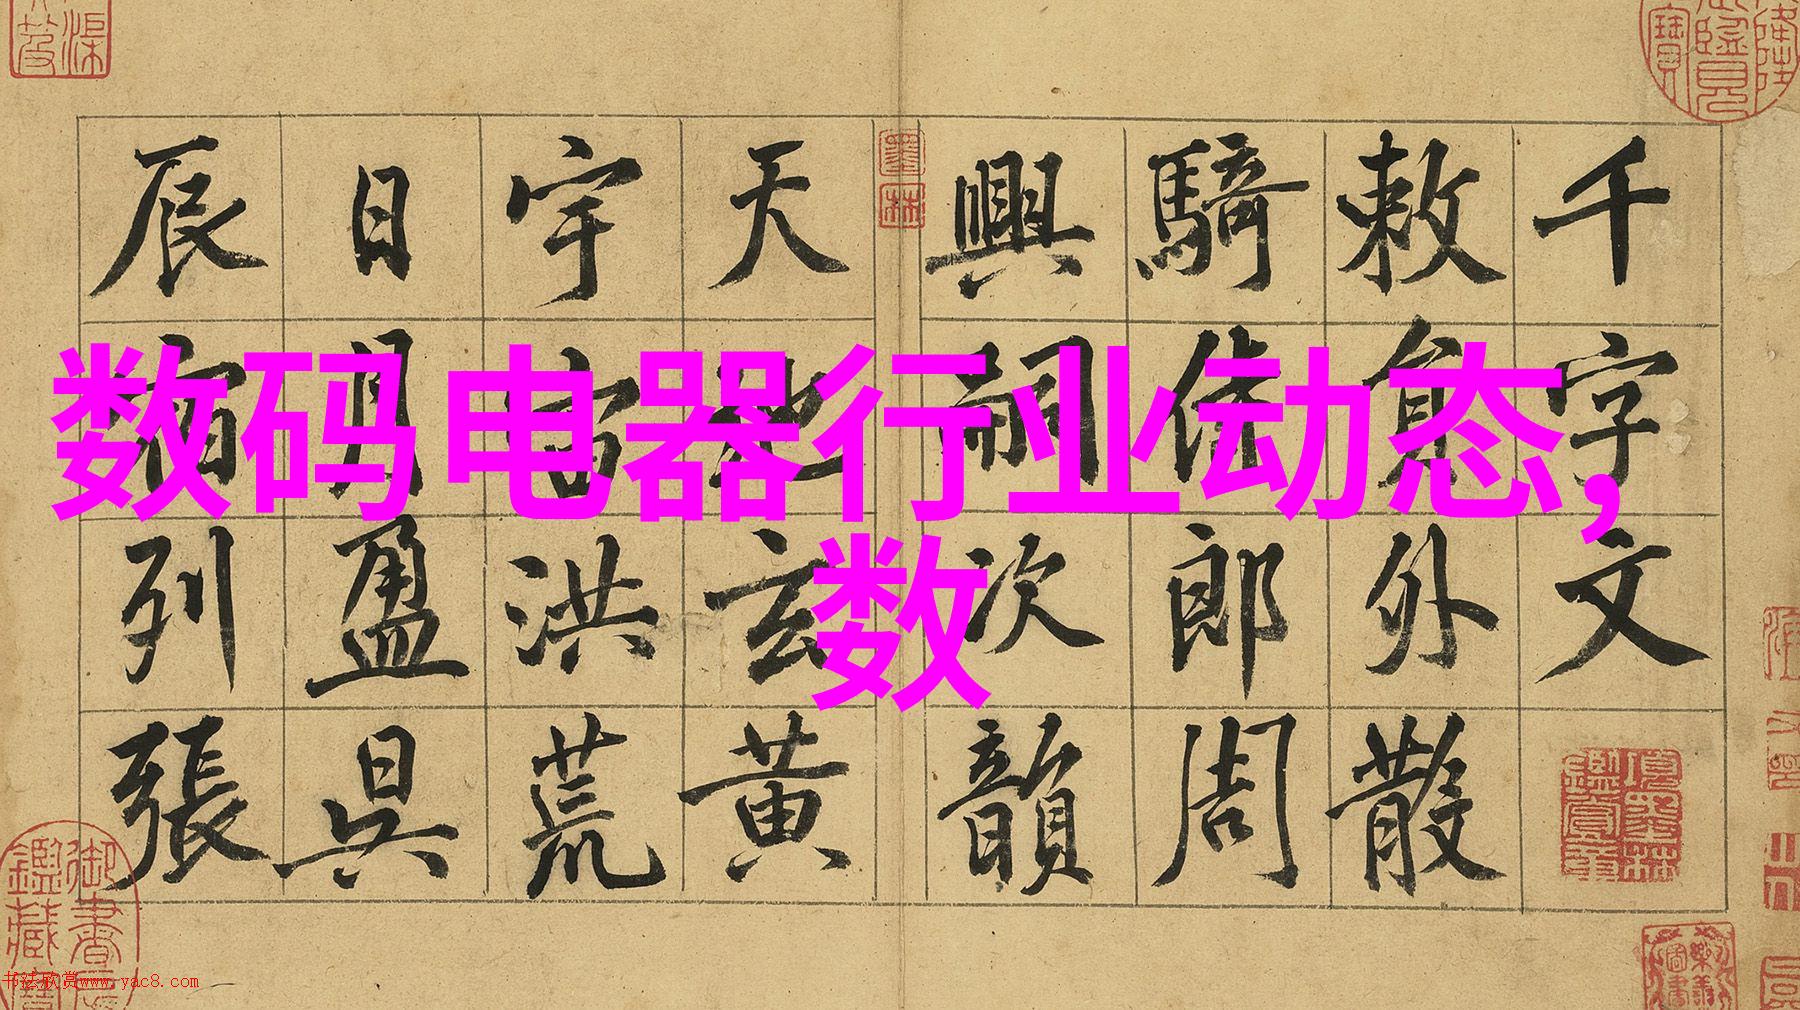 数码电器行业动态,
数
千字文
敕員外散
騎侍郎周
興嗣次韻
天地玄黄
宇宙洪荒
日月盈昃
辰宿列張
墨林
书法欣赏www.yac8.com